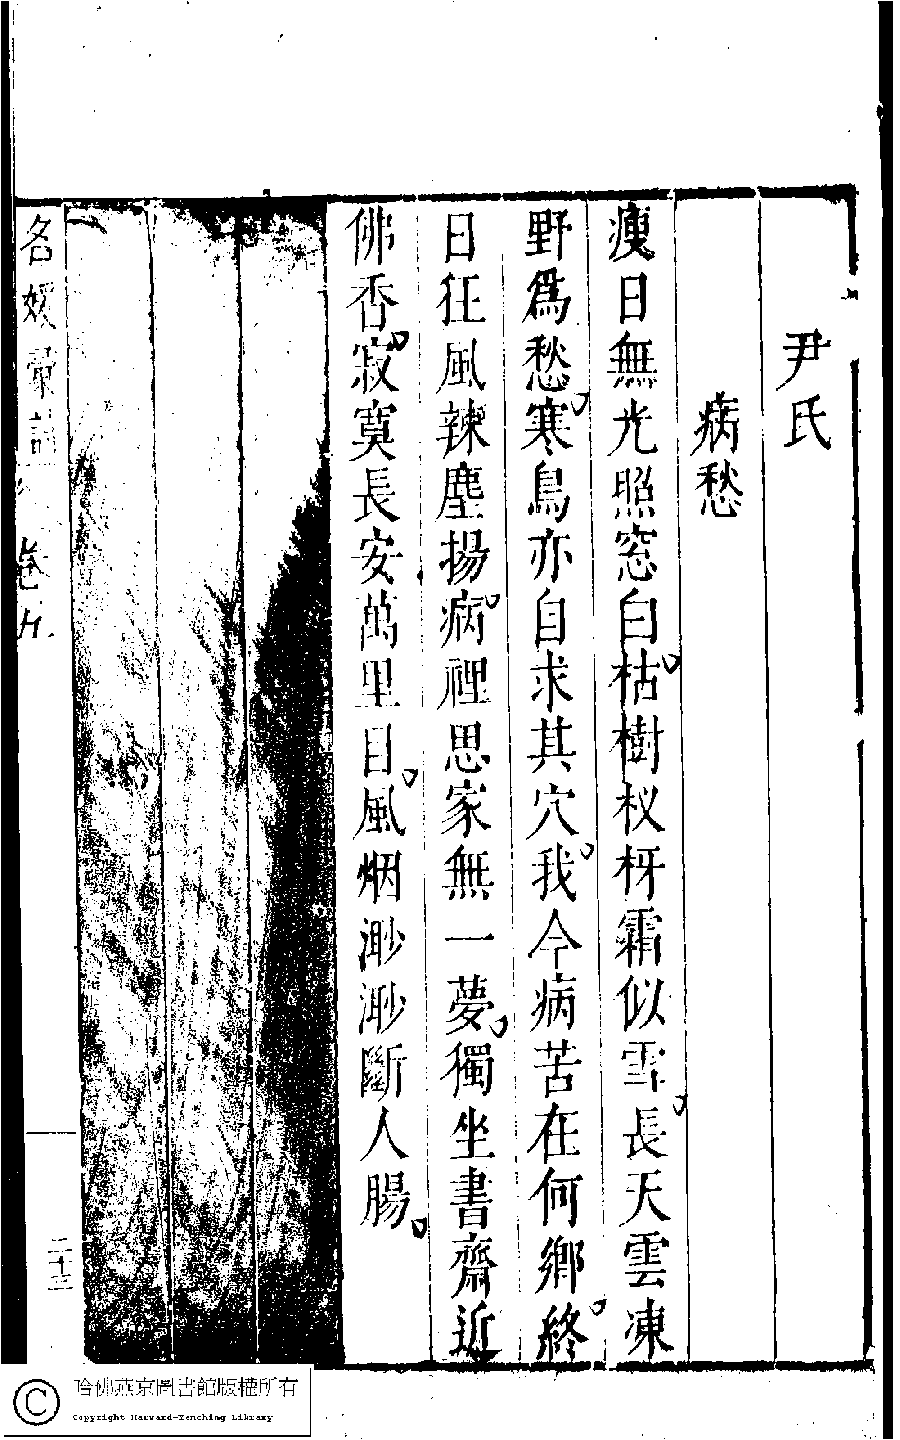 尹氏
病愁
瘦日無光照窓白枯樹杈枒霜似雪長天雲凍
野爲愁寒鳥亦自求其穴我今病苦在何鄉終
日狂風辣塵揚病裡思家無一夢獨坐書齋近
佛香寂寞長安萬里目風烟渺渺斷人腸
名媛彙詩 卷九
二十三
哈佛燕京圖書館版權所有
Copyright Harvard-Yenching Library